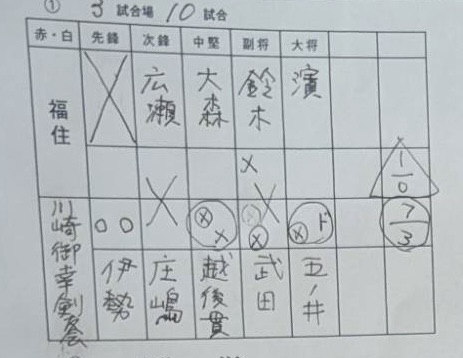 ① 3 試合場 10 試合
赤・白 先鋒 次鋒 中堅 副将 大将
福住 広瀬 大森 鈴木 濱
メ 1/0
川崎御幸剣友会 ○○ メ メ ド メ メ 7/3
伊勢 庄嶋 越後貫 武田 五ノ井